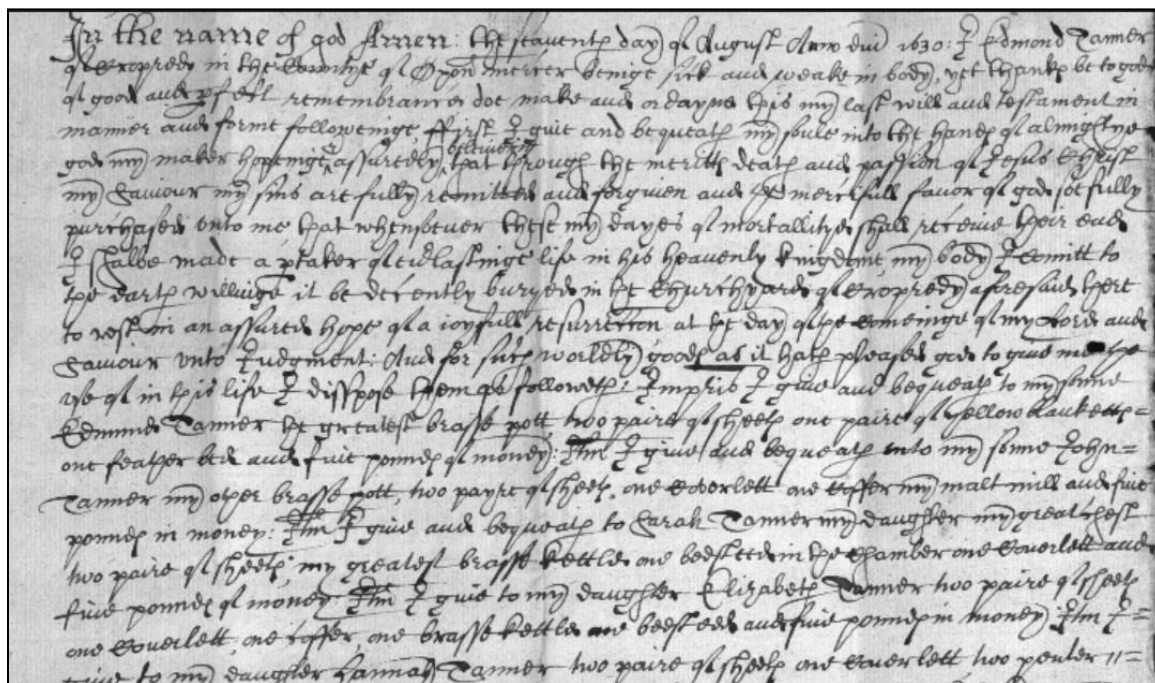 In the name of god Amen: the seaventh day of August Anno dni 1630: I Edmond Tanner
of Cropredy in the Countye of Oxon mercer beinge sick and weake in body, yet thankes be to god
of good and pfect remembrance doe make and ordayne this my last will and testament in
manner and forme followeinge ffirst I give and bequeath my soule into the handes of almightye
god my maker hopeinge & assuredly beleiving that through the merittes death and passion of Jesus Christ
my Saviour my sins are fully remitted and forgiven and mercifull favor of god soe fully
purchased unto me that whensoever these my dayes of mortallitye shall receive their end
I shalbe made a ptaker of evlastinge life in his heavenly kingdome my body I comitt to
the earth willinge it be decently buryed in the Churchyard of Cropredy aforesaid there
to rest in an assured hope of a ioyfull resurrection at the day of the comeinge of my Lord and
Saviour unto Judgment: And for such worldly goodes as it hath pleased god to give me the
use of in this life I disspose them as followeth: Impris I give and bequeath to my sonne
Edmund Tanner the greatest brasse pott two paire of sheetes one paire of yellow blankettes=
one feather bed and five poundes of money: Itm I give and bequeath unto my sonne John=
Tanner my other brasse pott, two payre of sheetes, one Coverlett one Coffer my malt mill and five
poundes in money: Itm I give and bequeath to Sarah Tanner my daughter my great chest
two paire of sheetes my greatest brasse kettle one beedsteed in the Chamber one Coverlett and
five poundes of money Itm I give to my daughter Elizabeth Tanner two paire of sheetes
one Coverlett, one coffer, one brasse kettle one beedsteed and five poundes in money Itm I=
give to my daughter Hannah Tanner two paire of sheetes one Coverlett two pewter